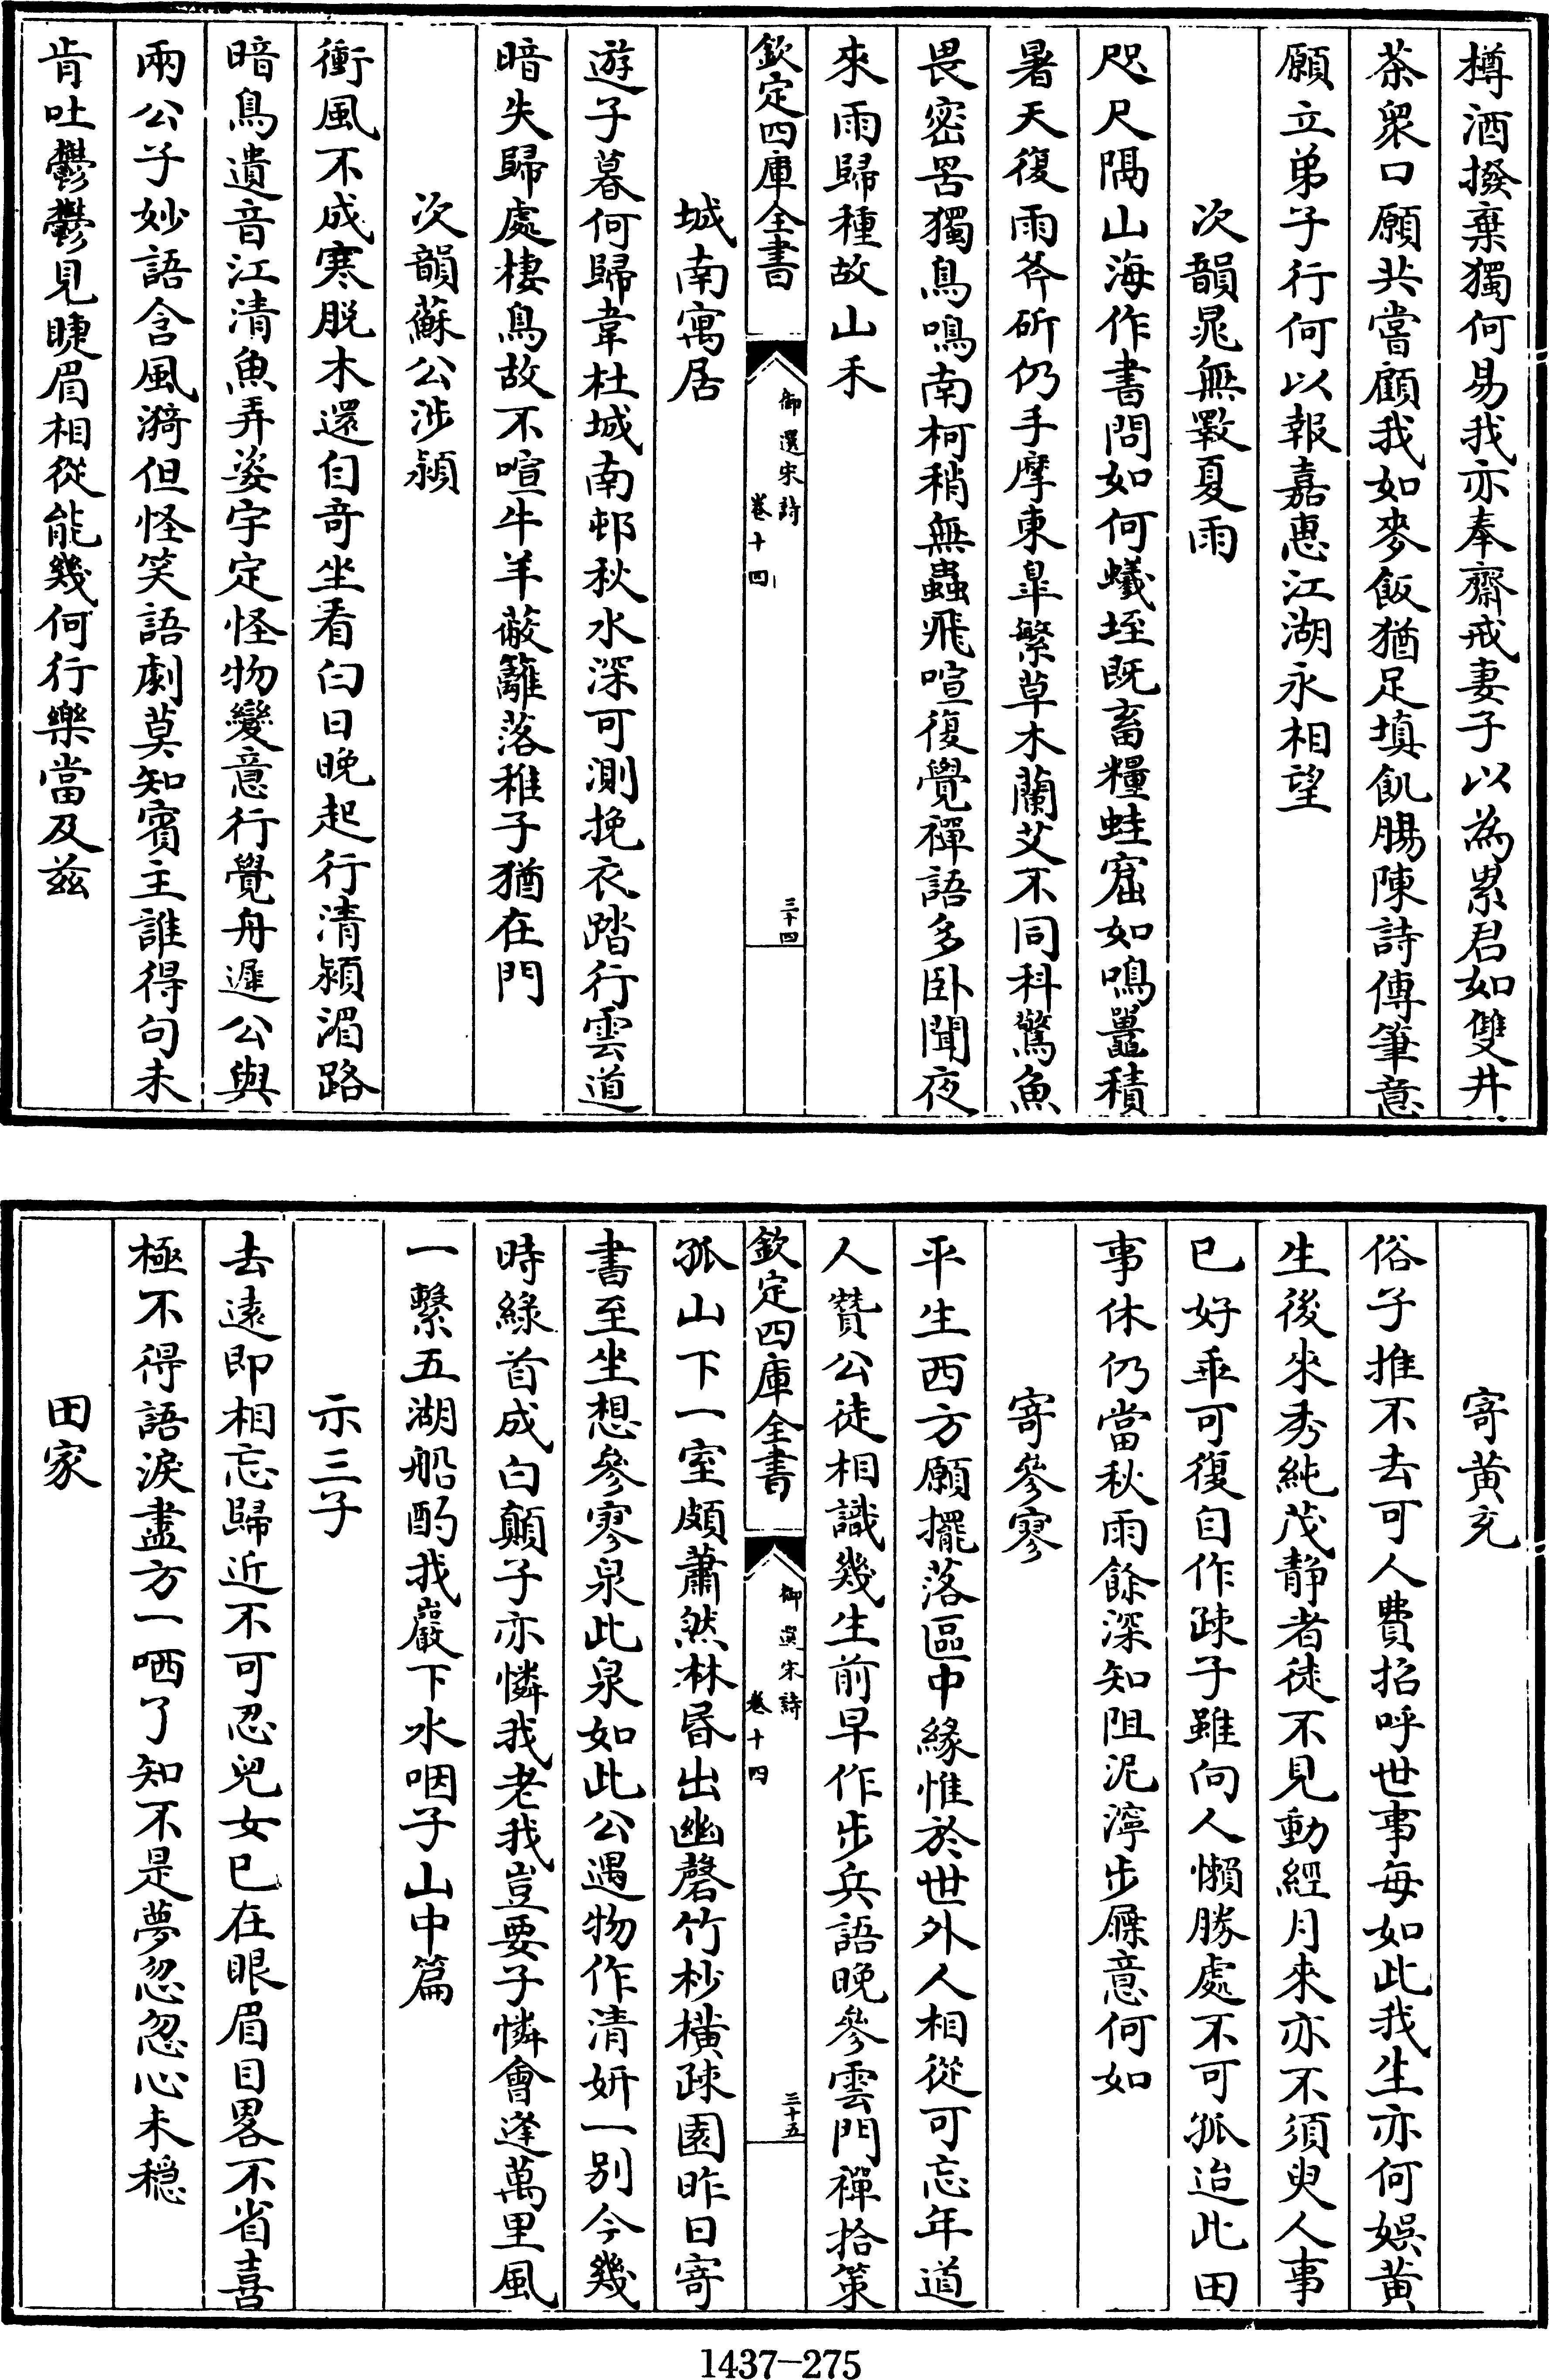 樽酒撥棄獨何易我亦奉齋戒妻子以為累君如雙井
茶衆口願共嘗顧我如麥飯猶足填飢腸陳詩傳筆意
願立弟子行何以報嘉惠江湖永相望
次韻晁無斁夏雨
咫尺隅山海作書問如何蟻垤既畜糧蛙窟如鳴鼉積
暑天復雨斧斫仍手摩東臯繁草木蘭艾不同科驚魚
畏密罟獨鳥鳴南柯稍無蟲飛喧復覺禪語多卧聞夜
來雨歸種故山禾
欽定四庫全書
御選宋詩
卷十四
三十四
城南寓居
遊子暮何歸韋杜城南邨秋水深可測挽衣踏行雲道
暗失歸處棲鳥故不喧牛羊蔽籬落稚子猶在門
次韻蘇公涉潁
衝風不成寒脱木還自奇坐看白日晚起行清潁湄路
暗鳥遺音江清魚弄姿宇定怪物變意行覺舟遲公與
兩公子妙語含風漪但怪笑語劇莫知賓主誰得句未
肯吐鬱鬱見睫眉相從能幾何行樂當及兹
寄黄充
俗子推不去可人費招呼世事每如此我生亦何娱黄
生後來秀純茂靜者徒不見動經月來亦不須臾人事
已好乖可復自作疎子雖向人懶勝處不可孤迨此田
事休仍當秋雨餘深知阻泥濘步屧意何如
寄參寥
平生西方願擺落區中緣惟於世外人相從可忘年道
人贊公徒相識幾生前早作步兵語晚參雲門禪拾策
孤山下一室頗蕭然林昏出幽磬竹杪橫疎園昨日寄
書至坐想參寥泉此泉如此公遇物作清妍一别今幾
時綠首成白顛子亦憐我老我豈要子憐會逢萬里風
一繫五湖船酌我巖下水咽子山中篇
欽定四庫全書
御選宋詩
卷十四
三十五
示三子
去遠即相忘歸近不可忍兒女已在眼眉目畧不省喜
極不得語淚盡方一哂了知不是夢忽忽心未穩
田家
1437-275